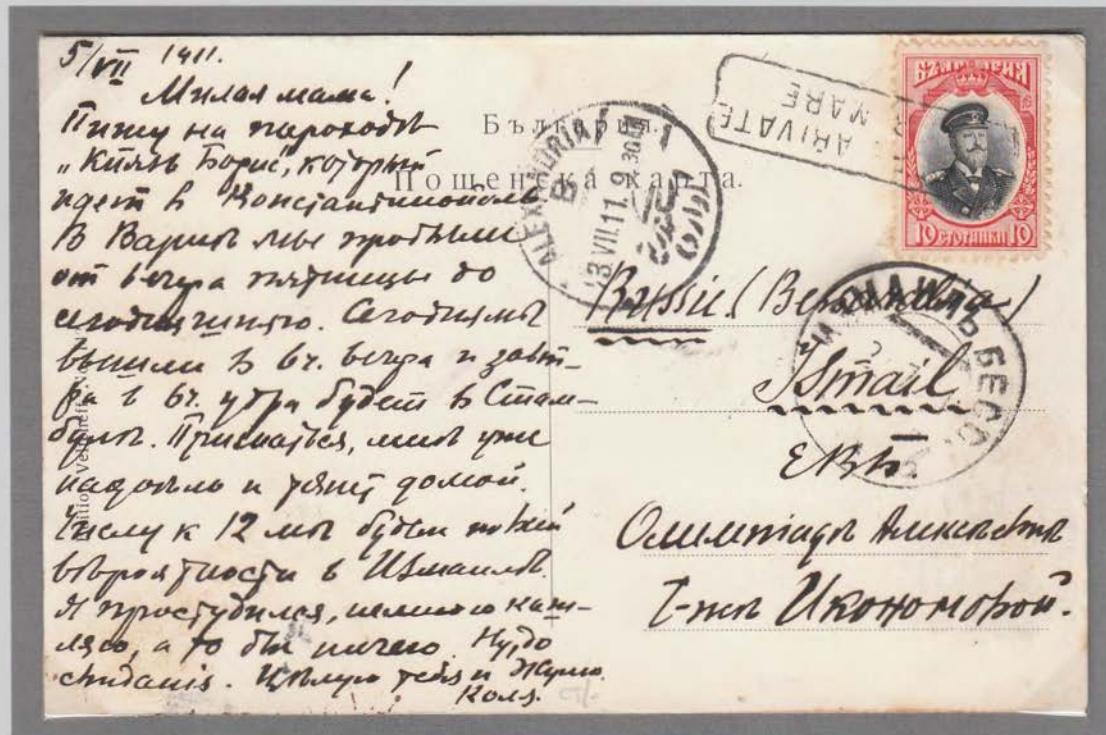 5/VII 1911.
Милая мама!
Пишу на пароходѣ
„Князь Борис", который
идет в Константинополь
В Варнѣ мы пробыли
от вечера пятницы до
сегодняшняго. Сегодня мы
вышли в 6 ч. вечера и завт-
ра в 6 ч. утра будем в Стам-
булѣ. Признаться, мнѣ уже
надоѣло и тянет домой.
Числу к 12 мы будем по всей
вѣроятности в Измаилѣ.
Я простудился, немного каш-
ляю, а то бы ничего. Ну, до
свиданія. Цѣлую тебя и
Коля.
България.
Пощенска карта.
ALEXANDRIA
13 VII 11. 9
ARIVATE
MARE
БЪЛГАРИЯ
10 СТОТИНКИ 10
Russie (Bessarabia)
Ismail
ИЗМАИЛЪ БЕСС.
ЕВБ
Олимпіадѣ Алексѣевнѣ
Г-жѣ Икономовой.